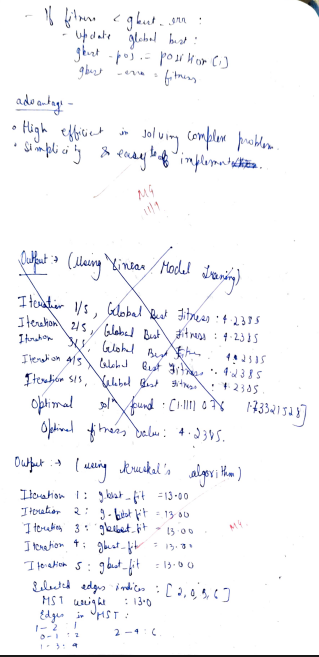 - If fitness < gbest_err :
- Update global best :
gbest_pos = position (i)
gbest_error = fitness
advantage -
• High efficient in solving complex problem.
• Simplicity & easy to implement
M4
11/9
Output :→ (Using Linear Model Training)
Iteration 1/5, Global Best Fitness : 4.2385
Iteration 2/5, Global Best Fitness : 4.2385
Iteration 3/5, Global Best Fitness : 4.2385
Iteration 4/5, Global Best Fitness : 4.2385
Iteration 5/5, Global Best Fitness : 4.2385
Optimal sol^n found : [1.1111 0.76
Optimal fitness value : 4.2385.
Output :→ (using Kruskal's algorithm)
Iteration 1 : gbest_fit = 13.00
Iteration 2 : g-best_fit = 13.00
Iteration 3 : gbest_fit = 13.00
M4
Iteration 4 : gbest_fit = 13.00
Iteration 5 : gbest_fit = 13.00
Selected edges indices : [2, 0, 3, 6]
MST weight : 13.0
Edges in MST :
1-2 : 1
0-1 : 2 2-4 : 6
1-3 : 4